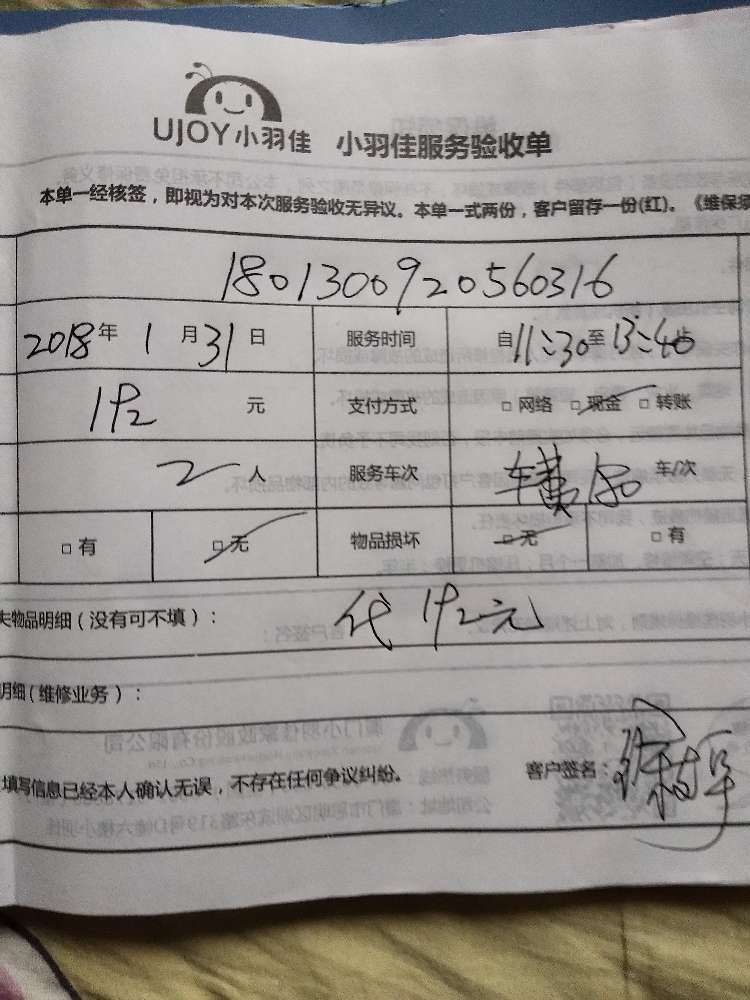 UJOY小羽佳 小羽佳服务验收单
本单一经核签，即视为对本次服务验收无异议。本单一式两份，客户留存一份(红)。《维保须
1801300920560316
2018年1月31日 服务时间 自11:30至13:40止
192元 支付方式 □网络 □现金 □转账
2人 服务车次 车费150车/次
□有 □无 物品损坏 □无 □有
失物品明细（没有可不填）： 代192元
明细（维修业务）：
填写信息已经本人确认无误，不存在任何争议纠纷。 客户签名：